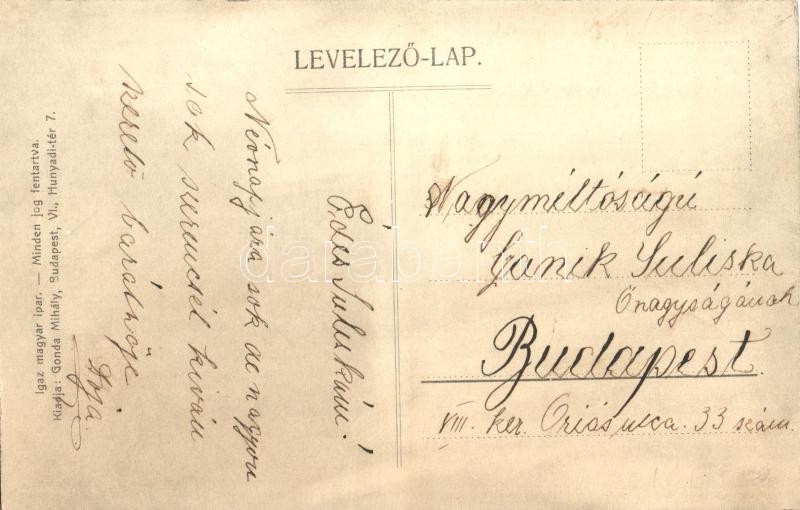 LEVELEZŐ-LAP.
Édes Juliskám!
Névnapjára sok de nagyon
sok szerencsét kiván
szerető barátnője
Nagyméltóságú
Janik Juliska
Őnagyságának
Budapest.
VIII. ker. Óriás utca. 33 szám.
Igaz magyar ipar. — Minden jog fentartva.
Kiadja: Gonda Mihály, Budapest, VI., Hunyadi-tér 7.
darabanth